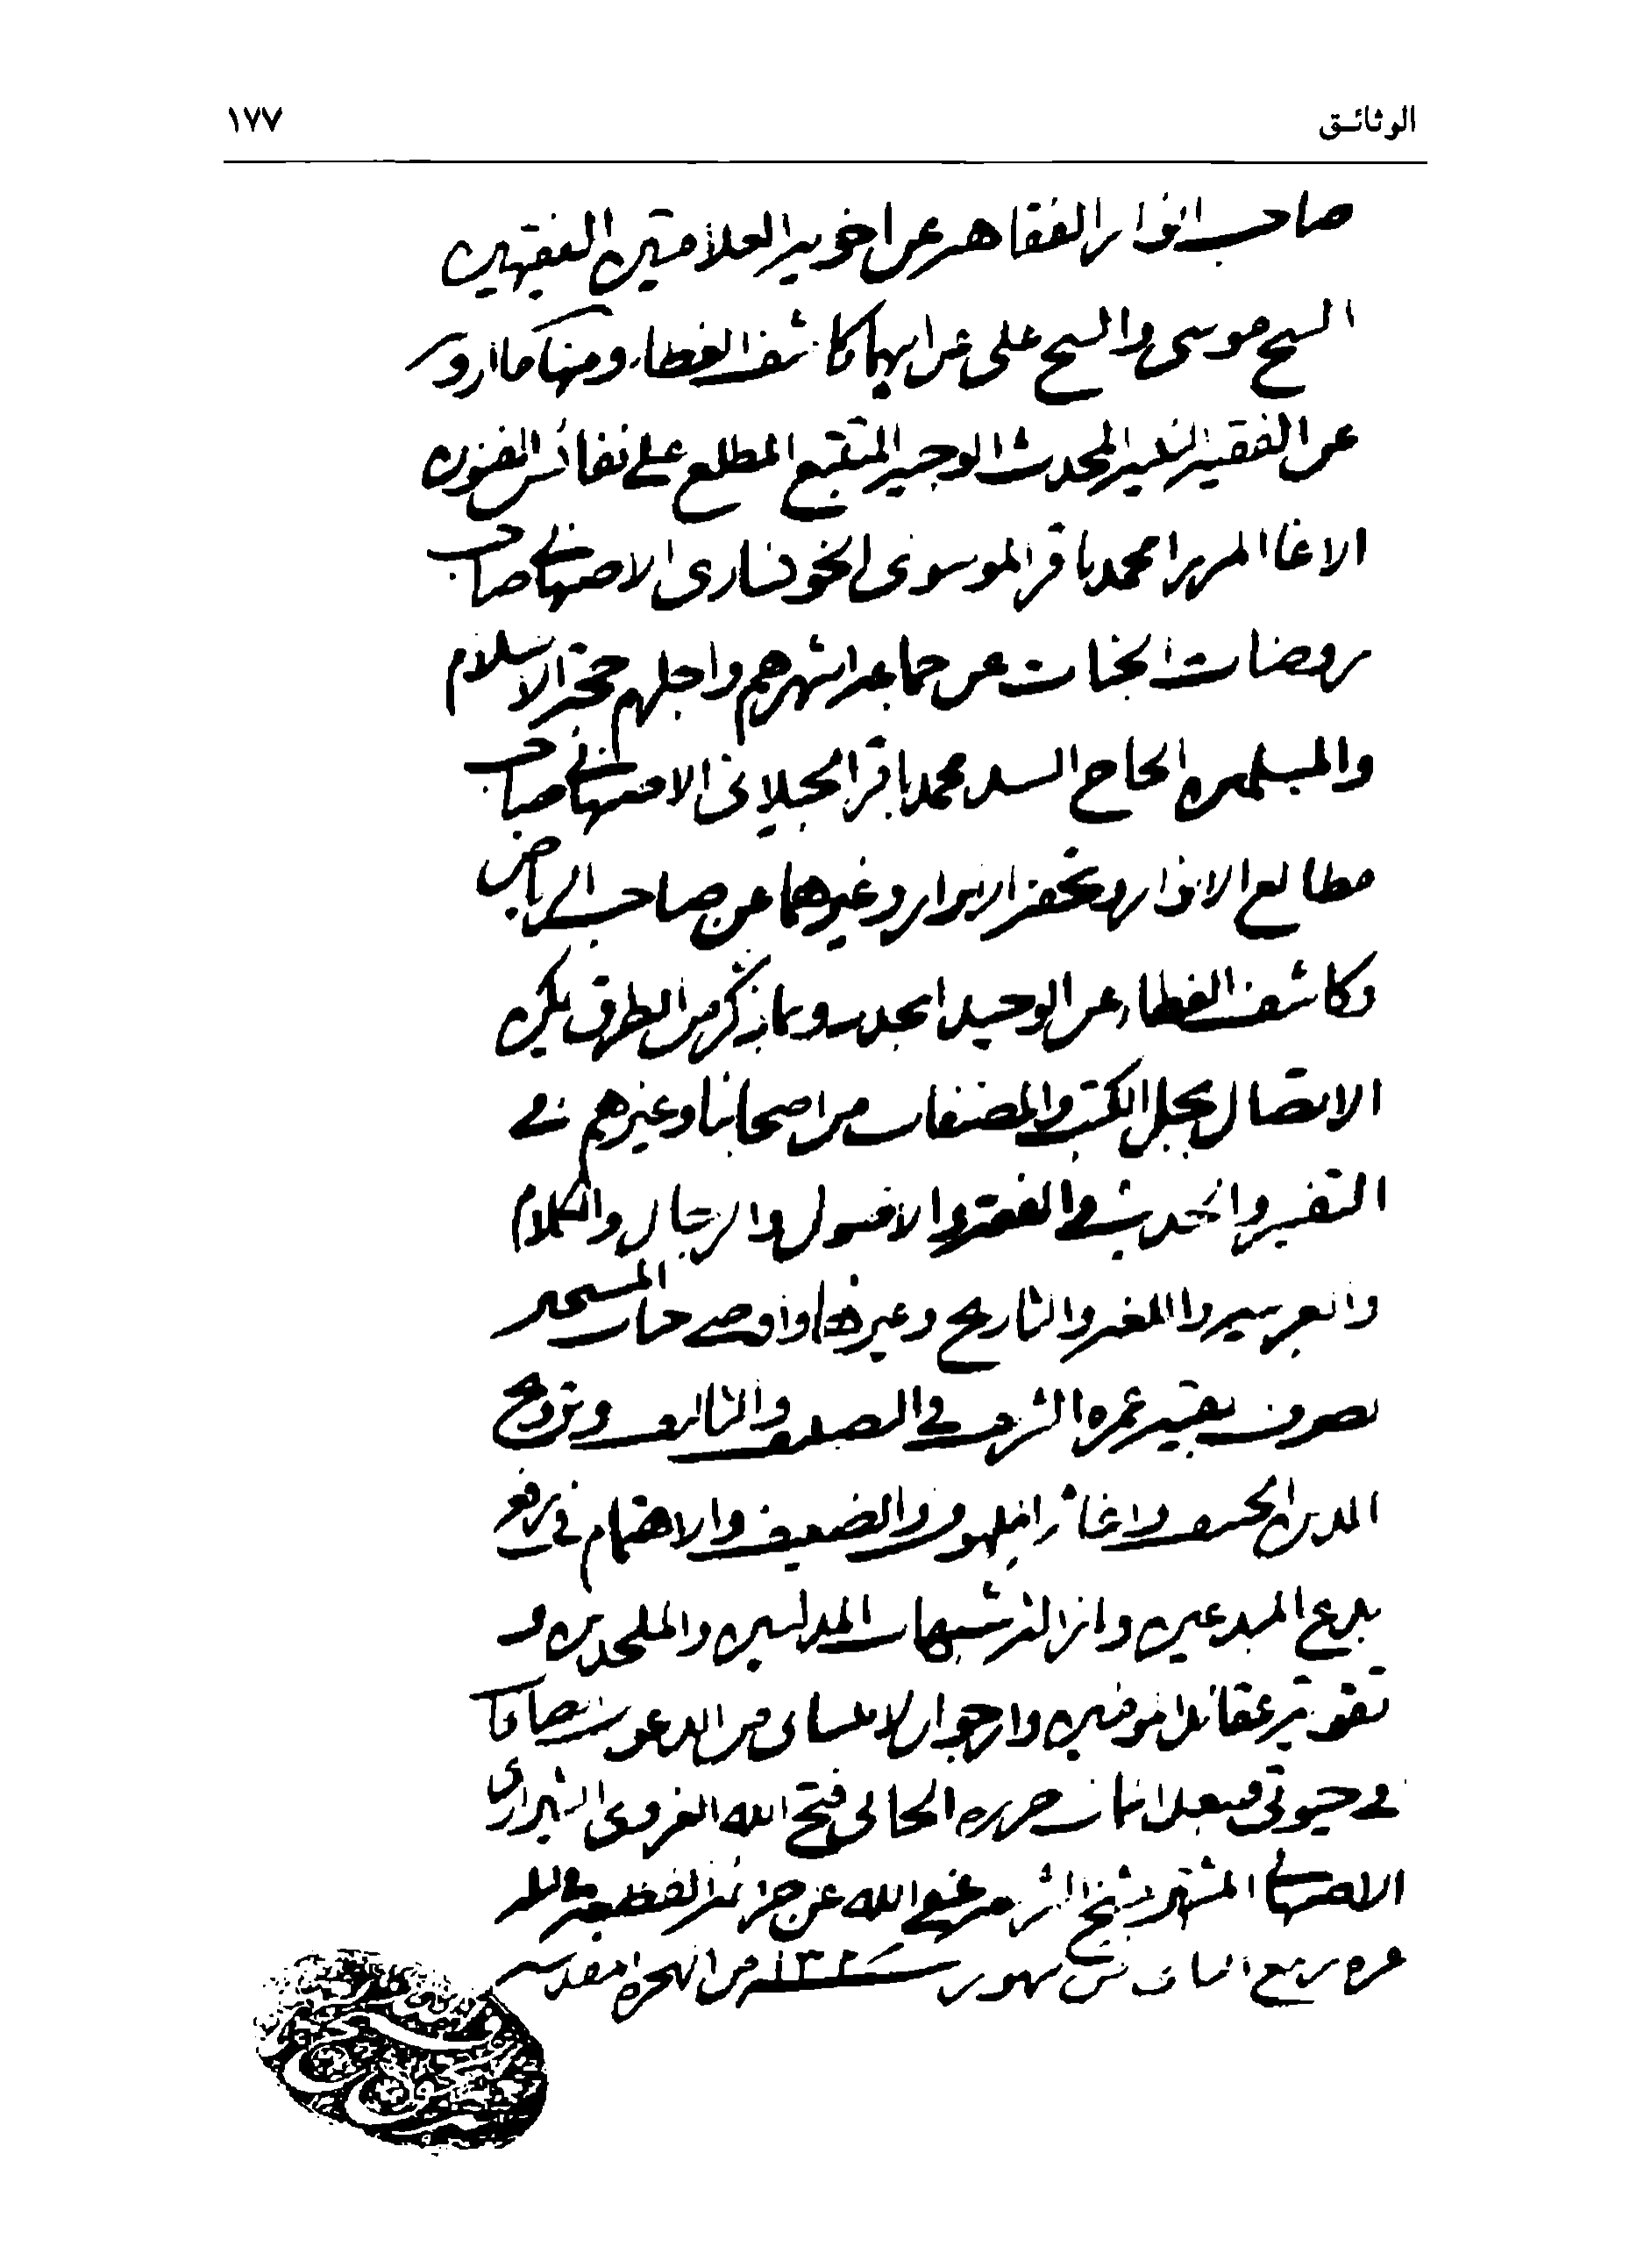 الوثائـق
١٧٧
صاحب انوار الفقاهه عن اخويه العلامتين الفقيهين
الشيخ موسى والشيخ على عن ابيهما كاشف الغطاء ومنها ما ارويه
عن الفقيه النبيه المحدث الوجيه المتتبع المطلع على نفائس الفنون
الاغا المرزا محمد باقر الموسوى الخونسارى الاصبهانى صاحب
روضات الجنات عن جماعه اشهرهم واجلهم حجة الاسلام
والمسلمين الحاج السيد محمد باقر الجيلانى الاصبهانى صاحب
مطالع الانوار وتحفة الابرار وغيرهما عن صاحب الرياض
وكاشف الغطاء عن الوحيد المجدد وبما ذكر من الطرق يمكن
الاتصال بجل الكتب والمصنفات من اصحابنا وغيرهم فى
التفسير والحديث والفقه والاصول والرجال والكلام
والعربيه واللغه والتاريخ وغيرها واوصى جناب المستجيز
بصرف بقيه عمره الشريف فى التصنيف والتاليف وترويج
الدين الحنيف واغاثه الملهوف والضعيف والاهتمام فى رفع
بدع المبدعين وازالة شبهات المدلسين والملحدين و
تقويه عقائد المومنين وارجو ان لا ينسانى من الدعوات الصالحات
فى حيوتى وبعد الممات حرره الجانى فتح الله الغروى الشيرازى
الاصبهانى المشتهر بشيخ الشريعه عفى الله عن جرائمه الفظيعه
غره ربيع الثانى من شهور سنه من الهجرة المقدسه